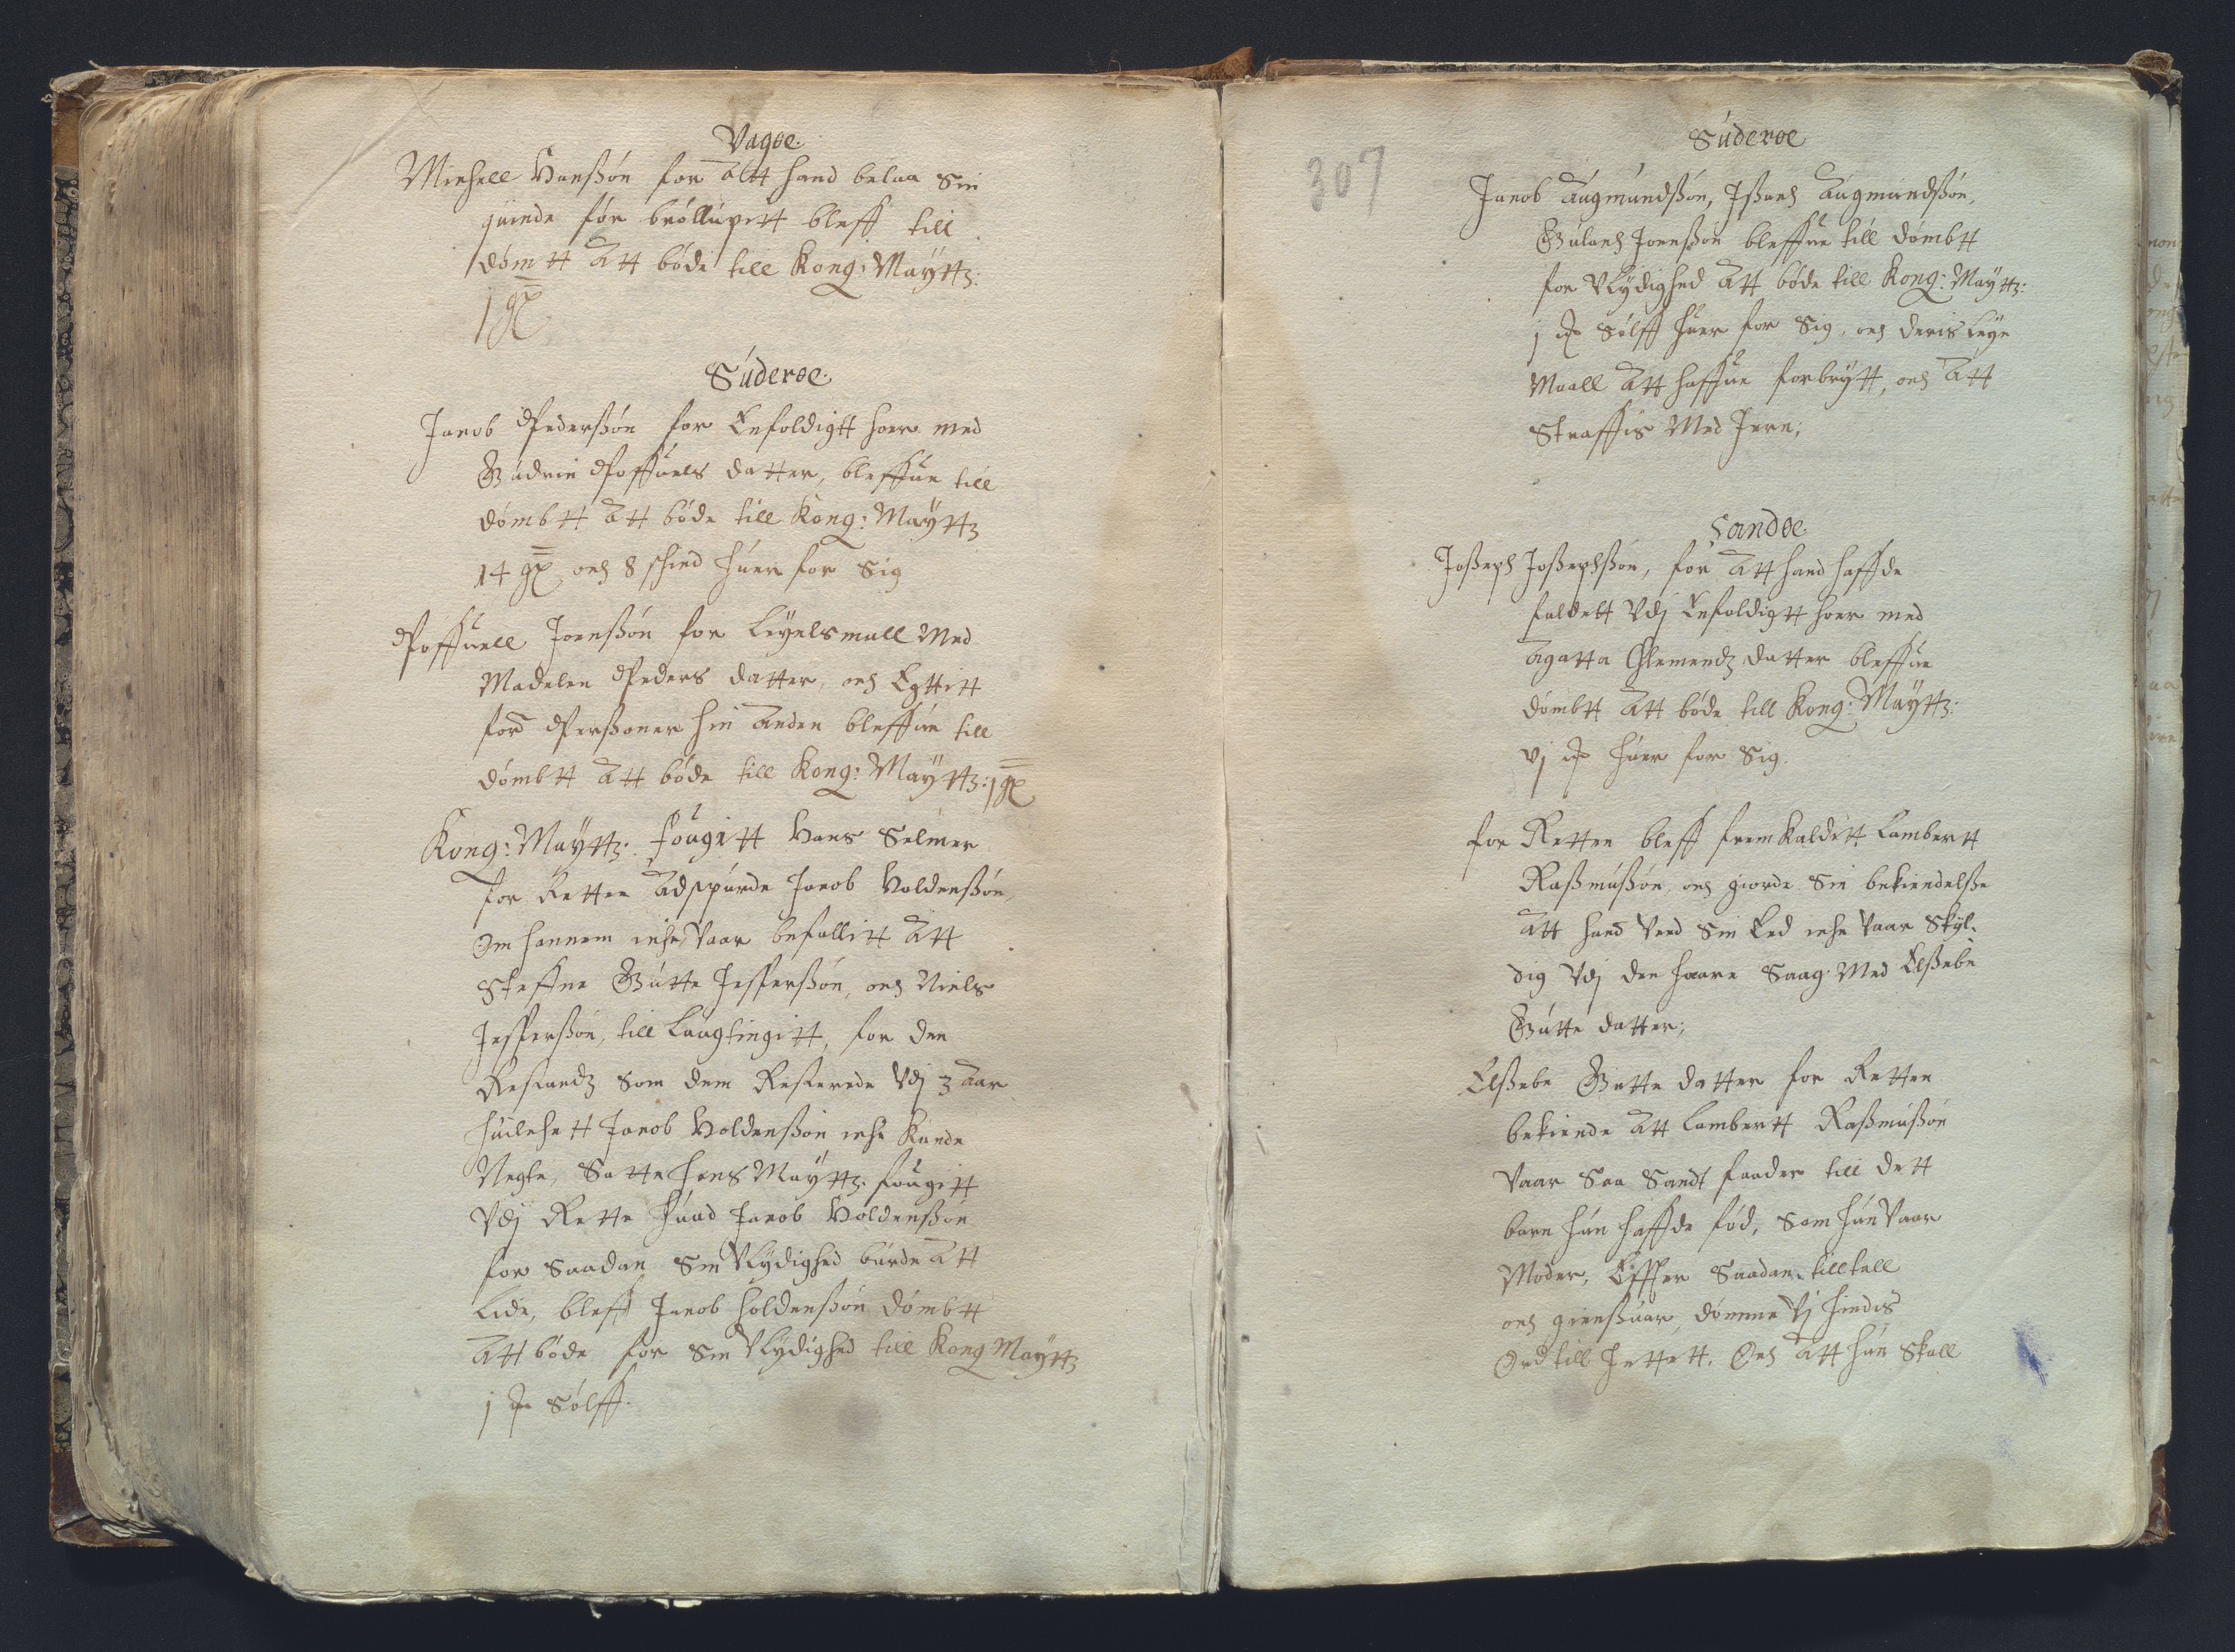 Vagøe.
Michell Hanßøn for att hand belaa Sin
quinde før brøllupitt bleff till
dømtt att bøde till Kong: Maÿttz:
1 gl
Suderøe.
Jacob Pederßøn for Enfoldigtt hoer med
Gudrin Poffuels datter, bleffue till
dømbtt att bøde till Kong: Maÿttz
14 gl och 8 schind huer for Sig
Poffuell Joenßøn for Leyelsmall Med
Madelen Peders datter, och Egttitt
for Perßoner hin anden bleffue till
dømbtt att bøde till Kong: Maÿttz: 1 gl
Kong: Maÿttz: fougitt Hans Selmer
for Retten adspurde Jacob Holdenßøn,
Om hannem iche Vaar befallitt att
Steffne Gutte Jesperßøn, och Niels
Jesperßøn, till Laugtingitt, for den
Restandz Som dem Resterede Vdj 3 aar
huilchett Jacob Holdenßøn iche Kunde
Negte, Satte hans Maÿttz. fougitt
Vdj Rette huad Jacob Holdenßøn
for Saadan Sin Vlÿdighed burde att
Lide, bleff Jacob Holdenßøn dømbtt
att bøde for Sin Vlÿdighed till Kong Maÿttz
j Sølff.
307
Suderøe
Jacob augmundßøn, Jßach augmundßøn,
Gulach Joenßøn bleffue till dømbtt
for Vlÿdighed att bøde till Kong: Maÿttz:
j Sølff huer for Sig, och deris Leye
Maall att haffue forbrÿtt, och att
Straffis Med Jern;
Sandøe.
Joßeph Joßephßøn, for att hand haffde
faldett Vdj Enfoldigtt hoer med
agatta Clemendz datter bleffue
dømbtt att bøde till Kong: Maÿttz:
vj huer for Sig.
for Retten bleff frem Kalditt Lambertt
Raßmußøn, och giorde Sin bekiendelße
att hand Ved Sin Eed iche Vaar Skÿl-
dig Vdj den haare Saag Med Elßebe
Gutte datter;
Elßebe Gutte datter for Retten
bekiende att Lambertt Raßmußøn
Vaar Saa Sandt faader till dett
barn hun haffde fød, Som hun Vaar
Moder, Effter Saadan tilltall
och gienßuar, dømme Vj hindis
Ord till Jettett. Och att hun Skall